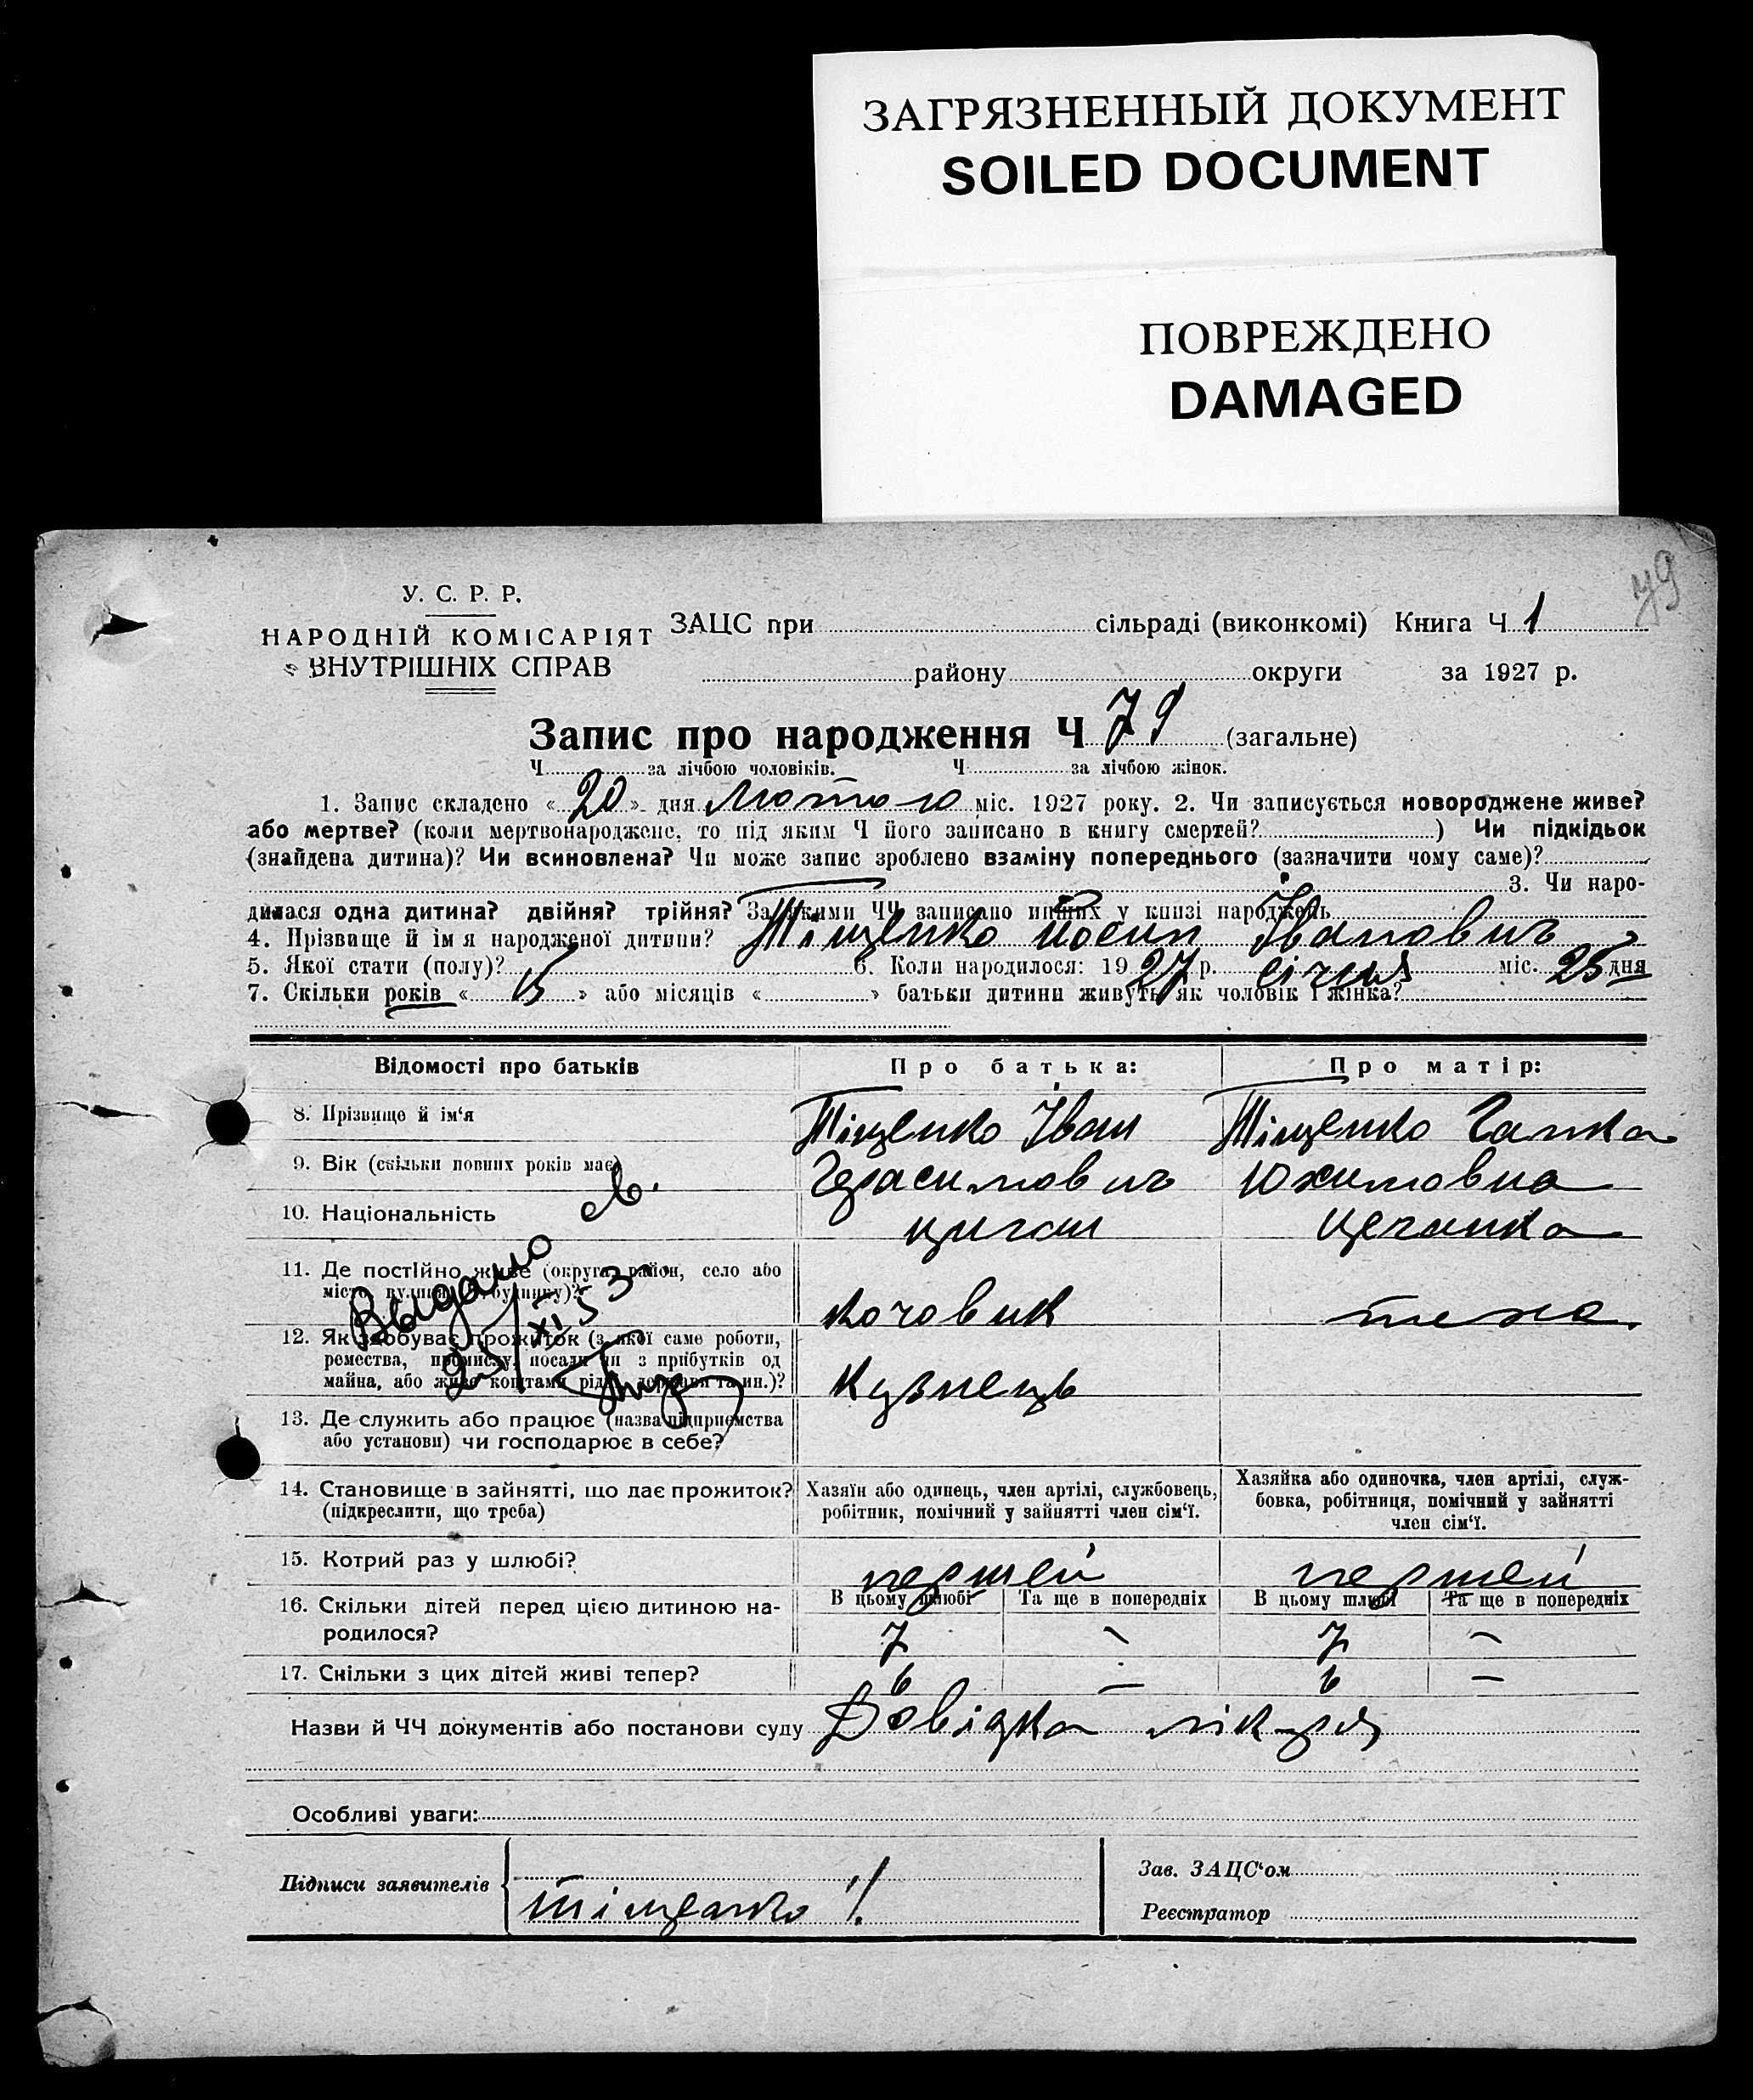 ЗАГРЯЗНЕННЫЙ ДОКУМЕНТ
SOILED DOCUMENT
ПОВРЕЖДЕНО
DAMAGED
79
У. С. Р. Р.
НАРОДНІЙ КОМІСАРІЯТ
ВНУТРІШНІХ СПРАВ
ЗАЦС при сільраді (виконкомі) Книга Ч 1
району округи за 1927 р.
Запис про народження Ч 79 (загальне)
Ч за лічбою чоловіків. Ч за лічбою жінок.
1. Запис складено « 20 » дня Лютого міс. 1927 року. 2. Чи записується новороджене живе?
або мертве? (коли мертвонароджене, то під яким Ч його записано в книгу смертей? ) Чи підкідьок
(знайдена дитина)? Чи всиновлена? Чи може запис зроблено взаміну попереднього (зазначити чому саме)?
3. Чи наро-
дилася одна дитина? двійня? трійня? За якими ЧЧ записано инших у книзі народжень
4. Прізвище й ім я народженої дитини? Тіщенко Йосип Іванович
5. Якої стати (полу)? 6. Коли народилося: 1927 р. січня міс. 25 дня
7. Скільки років « 15 » або місяців « » батьки дитини живуть як чоловік і жінка?
Відомості про батьків Про батька: Про матір:
8. Прізвище й ім‘я Тіщенко Іван Тіщенко Ганка
9. Вік (скільки повних років має) Герасимович Юхимовна
10. Національність циган циганка
11. Де постійно живе (округа, район, село або
місто, вулиця, будинку)? кочовик теж
12. Як здобуває прожиток (з якої саме роботи,
ремества, промислу, посади чи з прибутків од
майна, або живе коштами рідні, держави та ин.)? Кузнець
Выдано св.
25/XI 53
13. Де служить або працює (назва підприємства
або установи) чи господарює в себе?
14. Становище в зайнятті, що дає прожиток? Хазяїн або одинець, член артілі, службовець, Хазяйка або одиночка, член артілі, служ-
(підкреслити, що треба) робітник, помічний у зайнятті член сім‘ї. бовка, робітниця, помічний у зайнятті
член сім‘ї.
15. Котрий раз у шлюбі? першей першей
16. Скільки дітей перед цією дитиною на- В цьому шлюбі Та ще в попередніх В цьому шлюбі Та ще в попередніх
родилося? 7 – 7 –
17. Скільки з цих дітей живі тепер? 6 – 6 –
Назви й ЧЧ документів або постанови суду Довідка лікаря
Особливі уваги:
Підписи заявителів Зав. ЗАЦС‘ом
Тіщенко І. Реєстратор